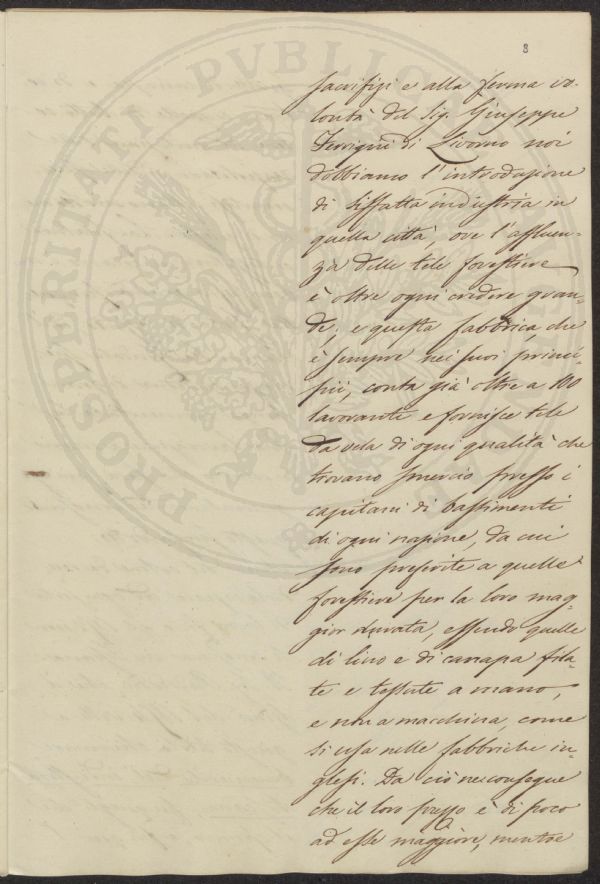 8
PROSPERITATI PVBLICAE
sacrifizi e alla ferma vo-
lontà del Sig. Giuseppe
Ferrigni di Livorno noi
dobbiamo l'introduzione
di siffatta industria in
quella città, ove l'affluen-
za delle tele forestiere
è oltre ogni credere gran-
de; e questa fabbrica, che
è sempre nei suoi princi-
pii, conta già oltre a 100
lavoranti e fornisce tele
da vela di ogni qualità che
trovano smercio presso i
capitani di bastimenti
di ogni nazione, da cui
sono preferite a quelle
forestiere per la loro mag-
gior durata, essendo quelle
di lino e di canapa fila-
te e tessute a mano,
e non a macchina, come
si usa nelle fabbriche in-
glesi. Da ciò ne consegue
che il loro prezzo è di poco
ad esse maggiore, mentre